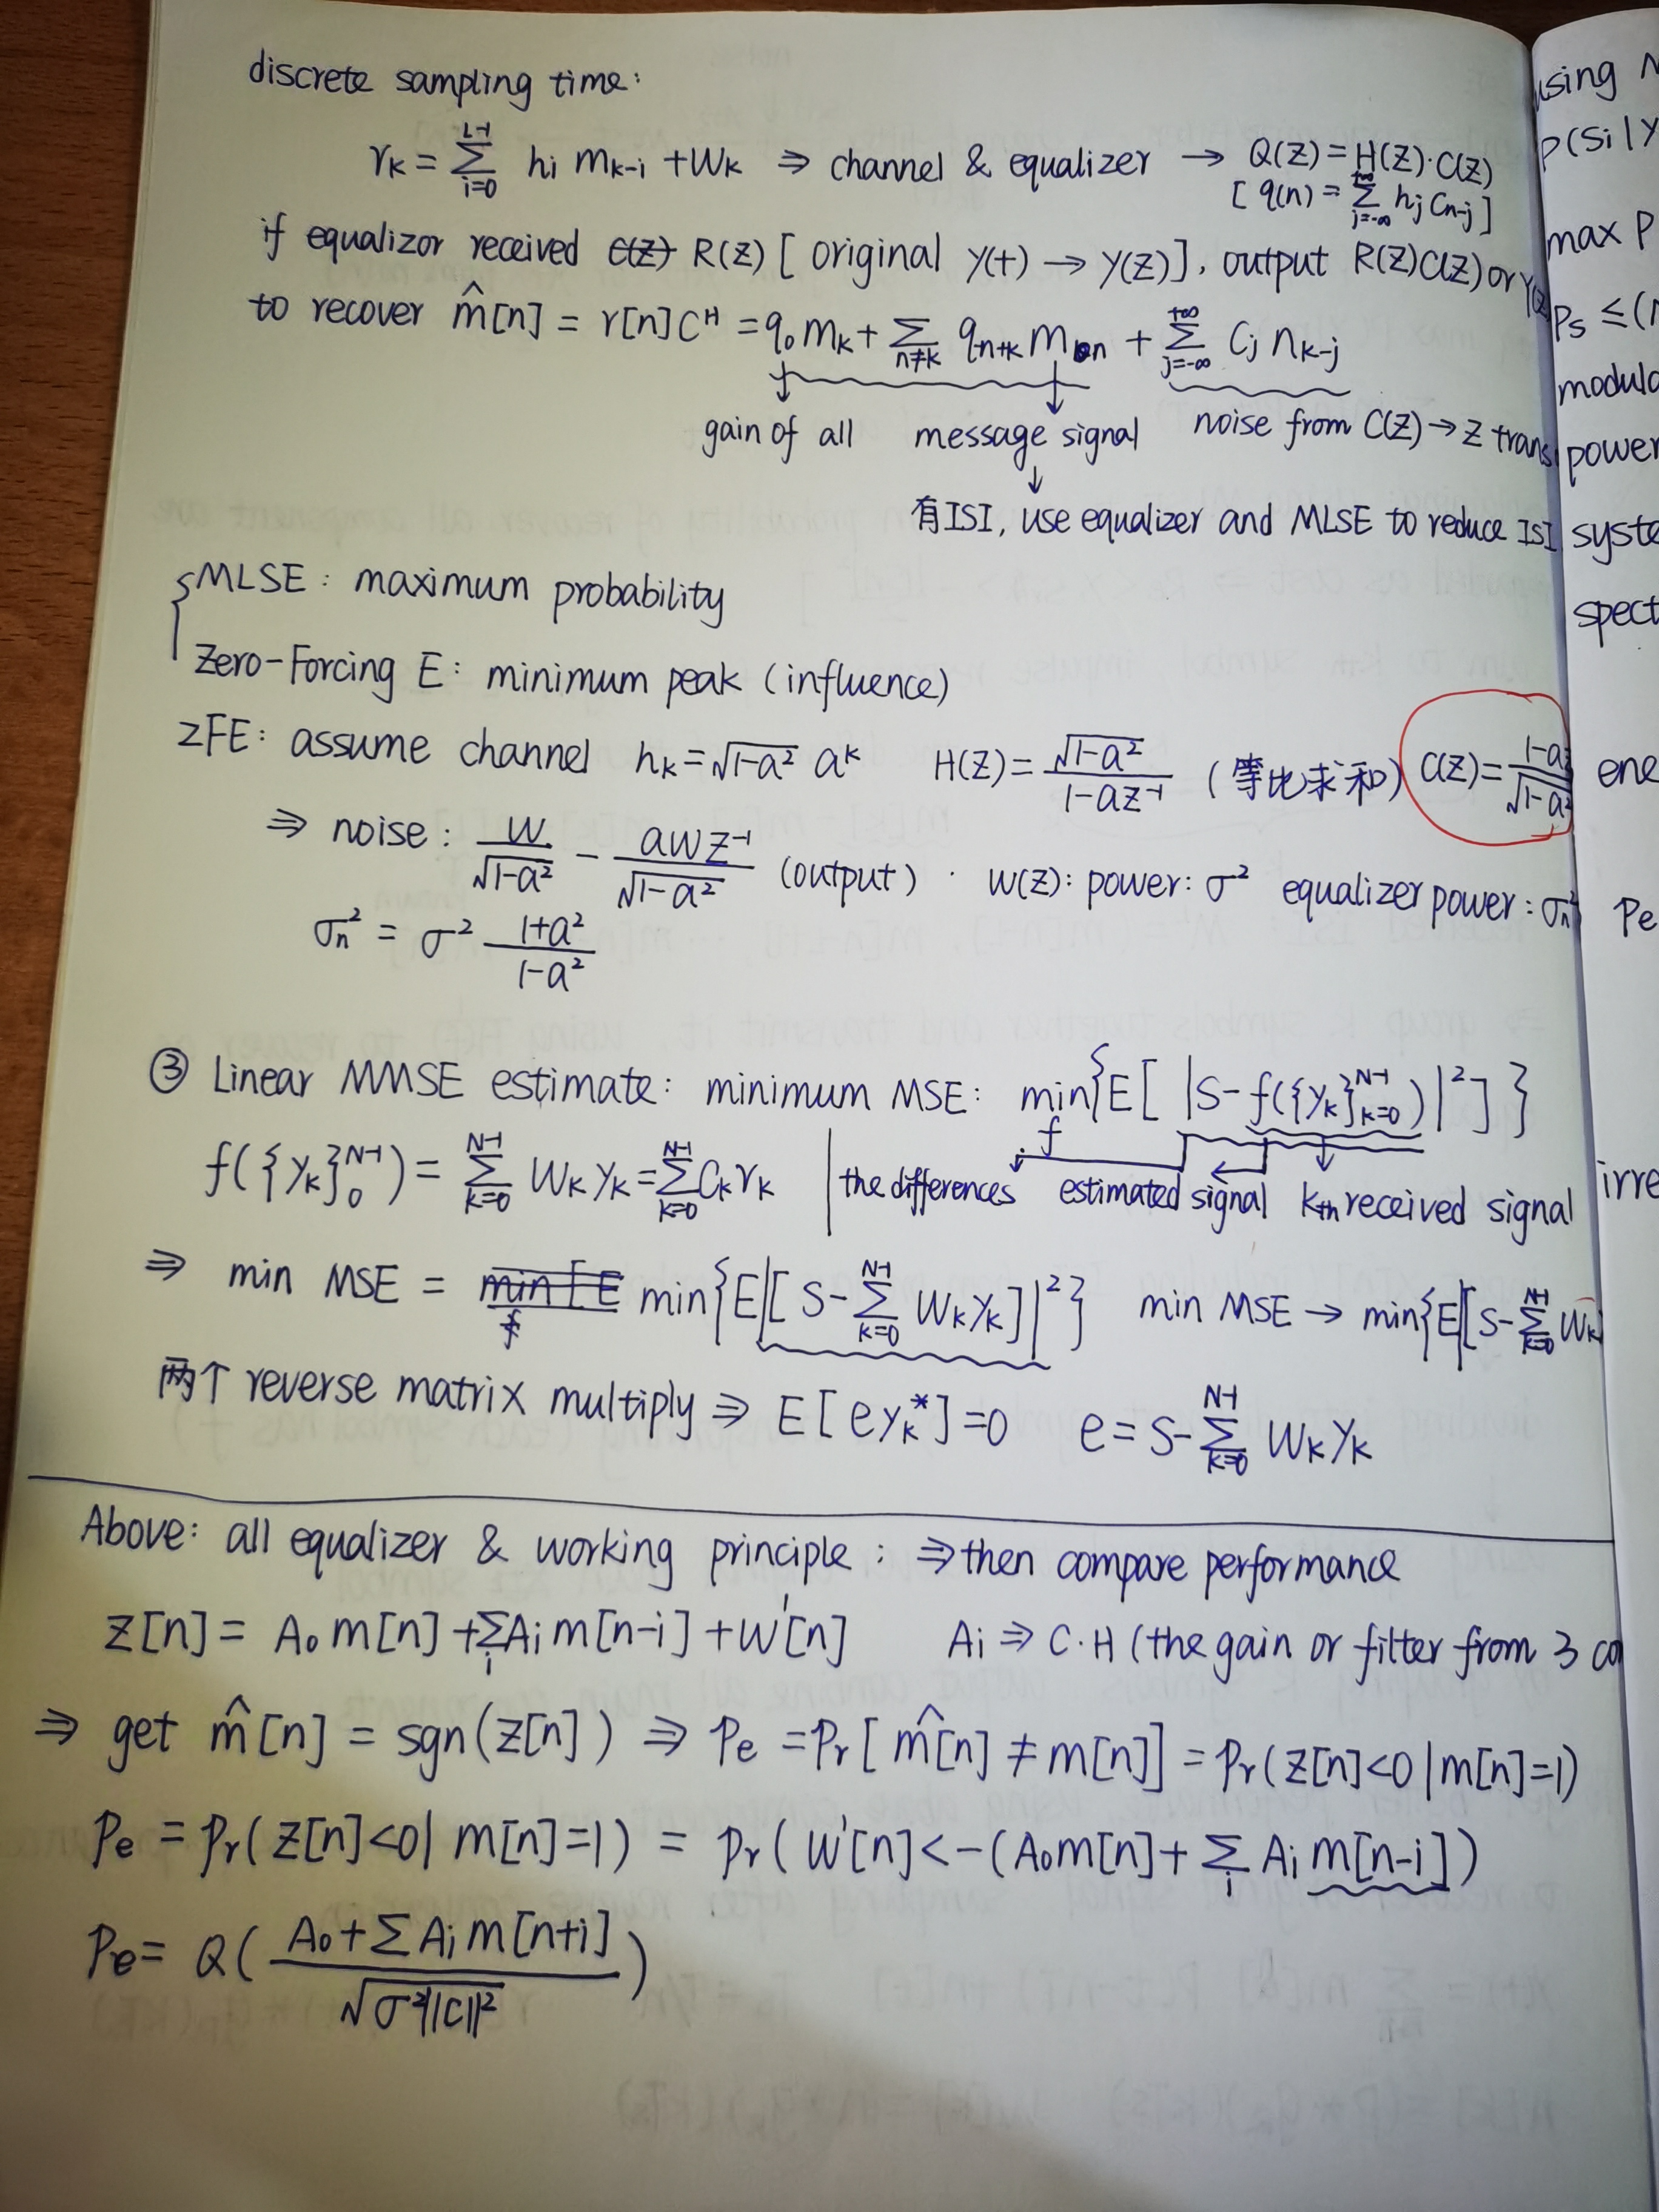 discrete sampling time:
r_k = Σ_{i=0}^{L-1} h_i m_{k-i} + W_k ⇒ channel & equalizer → Q(Z) = H(Z)·C(Z)
[ q(n) = Σ_{j=-∞}^{+∞} h_j C_{n-j} ]
if equalizor received C(Z) R(Z) [ original y(t) → y(Z) ], output R(Z)C(Z) or Y(Z)
to recover m̂[n] = r[n] C^H = q_0 m_k + Σ_{n≠k} q_{n+k} m_n + Σ_{j=-∞}^{+∞} C_j n_{k-j}
gain of all message signal noise from C(Z) → Z trans
有ISI, use equalizer and MLSE to reduce ISI
MLSE: maximum probability
Zero-Forcing E: minimum peak (influence)
ZFE: assume channel h_k = √(1-a²) a^k H(Z) = √(1-a²) / (1-aZ^{-1}) (等比求和) C(Z) = 1-aZ / √(1-a²)
⇒ noise: W/√(1-a²) - aWZ^{-1}/√(1-a²) (output) · W(Z): power: σ² equalizer power: σ_n²
σ_n² = σ² (1+a²)/(1-a²)
③ Linear MMSE estimate: minimum MSE: min_f {E[ |S-f({y_k}_{k=0}^{N-1})|² ] }
f({y_k}_0^{N-1}) = Σ_{k=0}^{N-1} W_k y_k = Σ_{k=0}^{N-1} C_k r_k | the differences estimated signal k_th received signal
⇒ min MSE = min_f [E min{E|[S-Σ_{k=0}^{N-1} W_k y_k]|²} min MSE → min{E|[S-Σ_{k=0}^{N-1} W_k
两个 reverse matrix multiply ⇒ E[e y_k^*] = 0 e = S-Σ_{k=0}^{N-1} W_k y_k
Above: all equalizer & working principle: ⇒ then compare performance
Z[n] = A_0 m[n] + Σ_i A_i m[n-i] + W'[n] A_i ⇒ C·H (the gain or filter from 3 co
⇒ get m̂[n] = sgn(Z[n]) ⇒ P_e = P_r[m̂[n] ≠ m[n]] = P_r(Z[n]<0 | m[n]=1)
P_e = P_r(Z[n]<0 | m[n]=1) = P_r(W'[n] < -(A_0 m[n] + Σ_i A_i m[n-i])
P_e = Q( (A_0 + Σ A_i m[n+i]) / √(σ²||C||²) )
using
P(Si|Y
max P
P_s ≤ (
modula
power
syste
spect
ene
Pe
irre